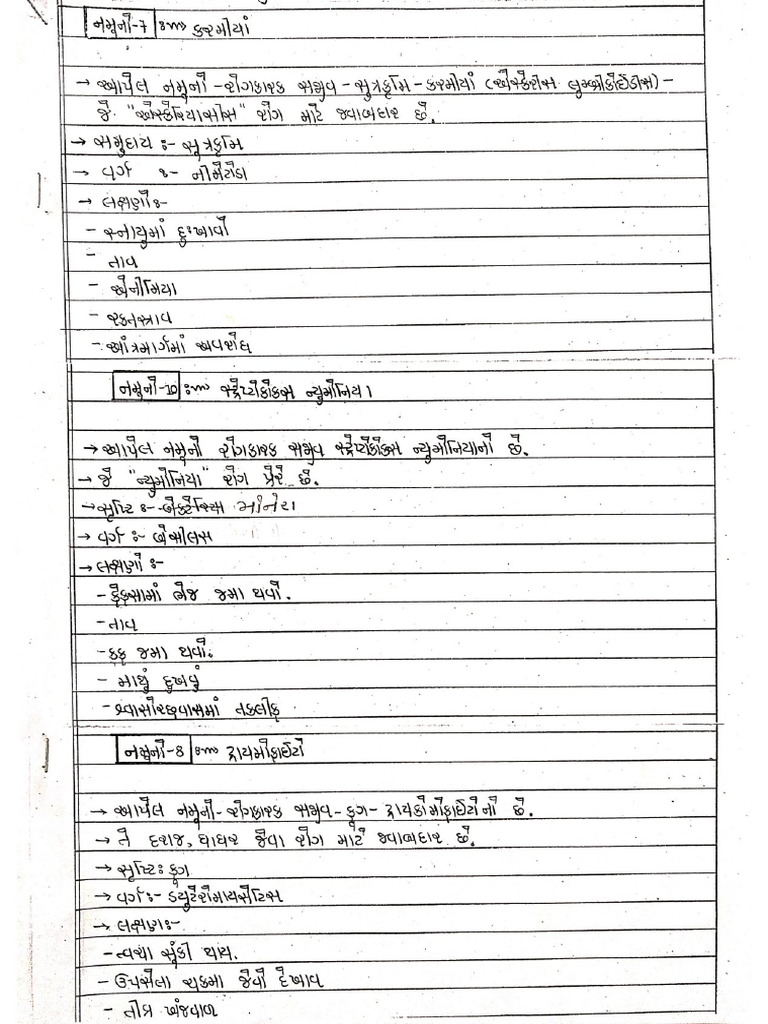 નમૂનો-7 :~ કરમીયાં
→ આપેલ નમૂનો - રોગકારક સજીવ - સૂત્રકૃમિ - કરમીયાં (એસ્કેરીસ લુમ્બ્રીકોઈડીસ) -
જે "એસ્કેરિયાસીસ" રોગ માટે જવાબદાર છે.
→ સમુદાય :- સૂત્રકૃમિ
→ વર્ગ :- નીમેટોડા
→ લક્ષણો :-
- સ્નાયુમાં દુઃખાવો
- તાવ
- એનીમિયા
- રક્તસ્ત્રાવ
- આંત્રમાર્ગમાં અવરોધ
નમૂનો-10 :~ સ્ટ્રેપ્ટોકોકસ ન્યુમોનિયા
→ આપેલ નમૂનો રોગકારક સજીવ સ્ટ્રેપ્ટોકોકસ ન્યુમોનિયાનો છે.
→ જે "ન્યુમોનિયા" રોગ પ્રેરે છે.
→ સૃષ્ટિ :- બેક્ટેરિયા મોનેરા
→ વર્ગ :- બેસીલસ
→ લક્ષણો :-
- ફેફસામાં ભેજ જમા થવો.
- તાવ
- કફ જમા થવો.
- માથું દુખવું
- શ્વાસોચ્છવાસમાં તકલીફ
નમૂનો-8 :~ ટ્રાયકોફાઈટો
→ આપેલ નમૂનો - રોગકારક સજીવ - ફૂગ - ટ્રાયકોમોફાઈટોનો છે.
→ તે દરાજ, ધાધર જેવા રોગ માટે જવાબદાર છે.
→ સૃષ્ટિ : ફૂગ
→ વર્ગ :- ડ્યુટેરોમાયસેટિસ
→ લક્ષણ :-
- ત્વચા સૂકી થાય.
- ઉપસેલા ચકમા જેવો દેખાવ
- તીવ્ર ખંજવાળ